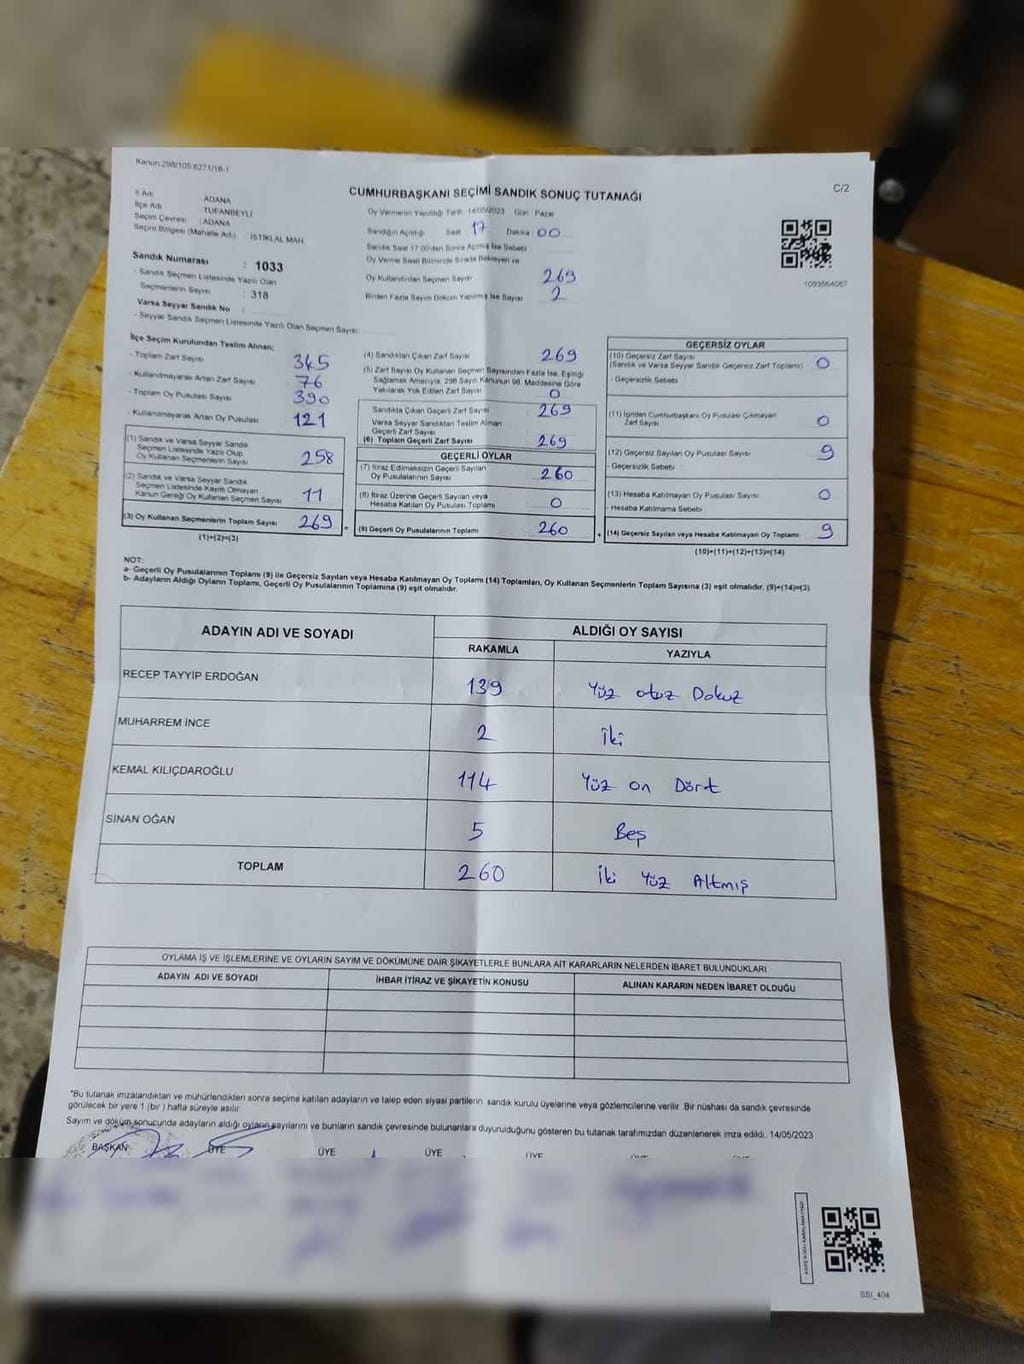 Kanun:298/105;6271/18-1
CUMHURBAŞKANI SEÇİMİ SANDIK SONUÇ TUTANAĞI
C/2
İl Adı : ADANA
İlçe Adı : TUFANBEYLİ
Seçim Çevresi : ADANA
Seçim Bölgesi (Mahalle Adı) : İSTİKLAL MAH.
Oy Vermenin Yapıldığı Tarih: 14/05/2023 Gün: Pazar
Sandığın Açıldığı Saat 17 Dakika 00
Sandık Saat 17:00'den Sonra Açılmış İse Sebebi
Oy Verme Saati Bitiminde Sırada Bekleyen ve
Oy Kullandırılan Seçmen Sayısı 269
Birden Fazla Sayım Döküm Yapılmış İse Sayısı 2
1093564087
Sandık Numarası : 1033
- Sandık Seçmen Listesinde Yazılı Olan
Seçmenlerin Sayısı : 318
Varsa Seyyar Sandık No :
- Seyyar Sandık Seçmen Listesinde Yazılı Olan Seçmen Sayısı
İlçe Seçim Kurulundan Teslim Alınan;
- Toplam Zarf Sayısı 345
- Kullanılmayarak Artan Zarf Sayısı 76
- Toplam Oy Pusulası Sayısı 390
- Kullanılmayarak Artan Oy Pusulası 121
(1) Sandık ve Varsa Seyyar Sandık
Seçmen Listesinde Yazılı Olup
Oy Kullanan Seçmenlerin Sayısı 258
(2) Sandık ve Varsa Seyyar Sandık
Seçmen Listesinde Kayıtlı Olmayan
Kanun Gereği Oy Kullanan Seçmen Sayısı 11
(3) Oy Kullanan Seçmenlerin Toplam Sayısı 269 =
(1)+(2)=(3)
(4) Sandıktan Çıkan Zarf Sayısı 269
(5) Zarf Sayısı Oy Kullanan Seçmen Sayısından Fazla İse, Eşitliği
Sağlamak Amacıyla, 298 Sayılı Kanunun 98. Maddesine Göre
Yakılarak Yok Edilen Zarf Sayısı 0
Sandıkta Çıkan Geçerli Zarf Sayısı 269
Varsa Seyyar Sandıktan Teslim Alınan
Geçerli Zarf Sayısı
(6) Toplam Geçerli Zarf Sayısı 269
GEÇERLİ OYLAR
(7) İtiraz Edilmeksizin Geçerli Sayılan
Oy Pusulalarının Sayısı 260
(8) İtiraz Üzerine Geçerli Sayılan veya
Hesaba Katılan Oy Pusulası Toplamı 0
(9) Geçerli Oy Pusulalarının Toplamı 260 +
GEÇERSİZ OYLAR
(10) Geçersiz Zarf Sayısı
(Sandık ve Varsa Seyyar Sandık Geçersiz Zarf Toplamı) 0
- Geçersizlik Sebebi
(11) İçinden Cumhurbaşkanı Oy Pusulası Çıkmayan
Zarf Sayısı 0
(12) Geçersiz Sayılan Oy Pusulası Sayısı 9
- Geçersizlik Sebebi
(13) Hesaba Katılmayan Oy Pusulası Sayısı 0
- Hesaba Katılmama Sebebi
(14) Geçersiz Sayılan veya Hesaba Katılmayan Oy Toplamı 9
(10)+(11)+(12)+(13)=(14)
NOT:
a- Geçerli Oy Pusulalarının Toplamı (9) ile Geçersiz Sayılan veya Hesaba Katılmayan Oy Toplamı (14) Toplamları, Oy Kullanan Seçmenlerin Toplam Sayısına (3) eşit olmalıdır. (9)+(14)=(3)
b- Adayların Aldığı Oyların Toplamı, Geçerli Oy Pusulalarının Toplamına (9) eşit olmalıdır.
ADAYIN ADI VE SOYADI ALDIĞI OY SAYISI
RAKAMLA YAZIYLA
RECEP TAYYİP ERDOĞAN 139 Yüz otuz Dokuz
MUHARREM İNCE 2 İki
KEMAL KILIÇDAROĞLU 114 Yüz on Dört
SİNAN OĞAN 5 Beş
TOPLAM 260 İki Yüz Altmış
OYLAMA İŞ VE İŞLEMLERİNE VE OYLARIN SAYIM VE DÖKÜMÜNE DAİR ŞİKAYETLERLE BUNLARA AİT KARARLARIN NELERDEN İBARET BULUNDUKLARI
ADAYIN ADI VE SOYADI İHBAR İTİRAZ VE ŞİKAYETİN KONUSU ALINAN KARARIN NEDEN İBARET OLDUĞU
"Bu tutanak imzalandıktan ve mühürlendikten sonra seçime katılan adayların ve talep eden siyasi partilerin sandık kurulu üyelerine veya gözlemcilerine verilir. Bir nüshası da sandık çevresinde
görülecek bir yere 1 (bir) hafta süreyle asılır.
Sayım ve döküm sonucunda adayların aldığı oyların sayılarını ve bunların sandık çevresinde bulunanlara duyurulduğunu gösteren bu tutanak tarafımızdan düzenlenerek imza edildi. 14/05/2023
BAŞKAN ÜYE ÜYE ÜYE ÜYE
SSI_404